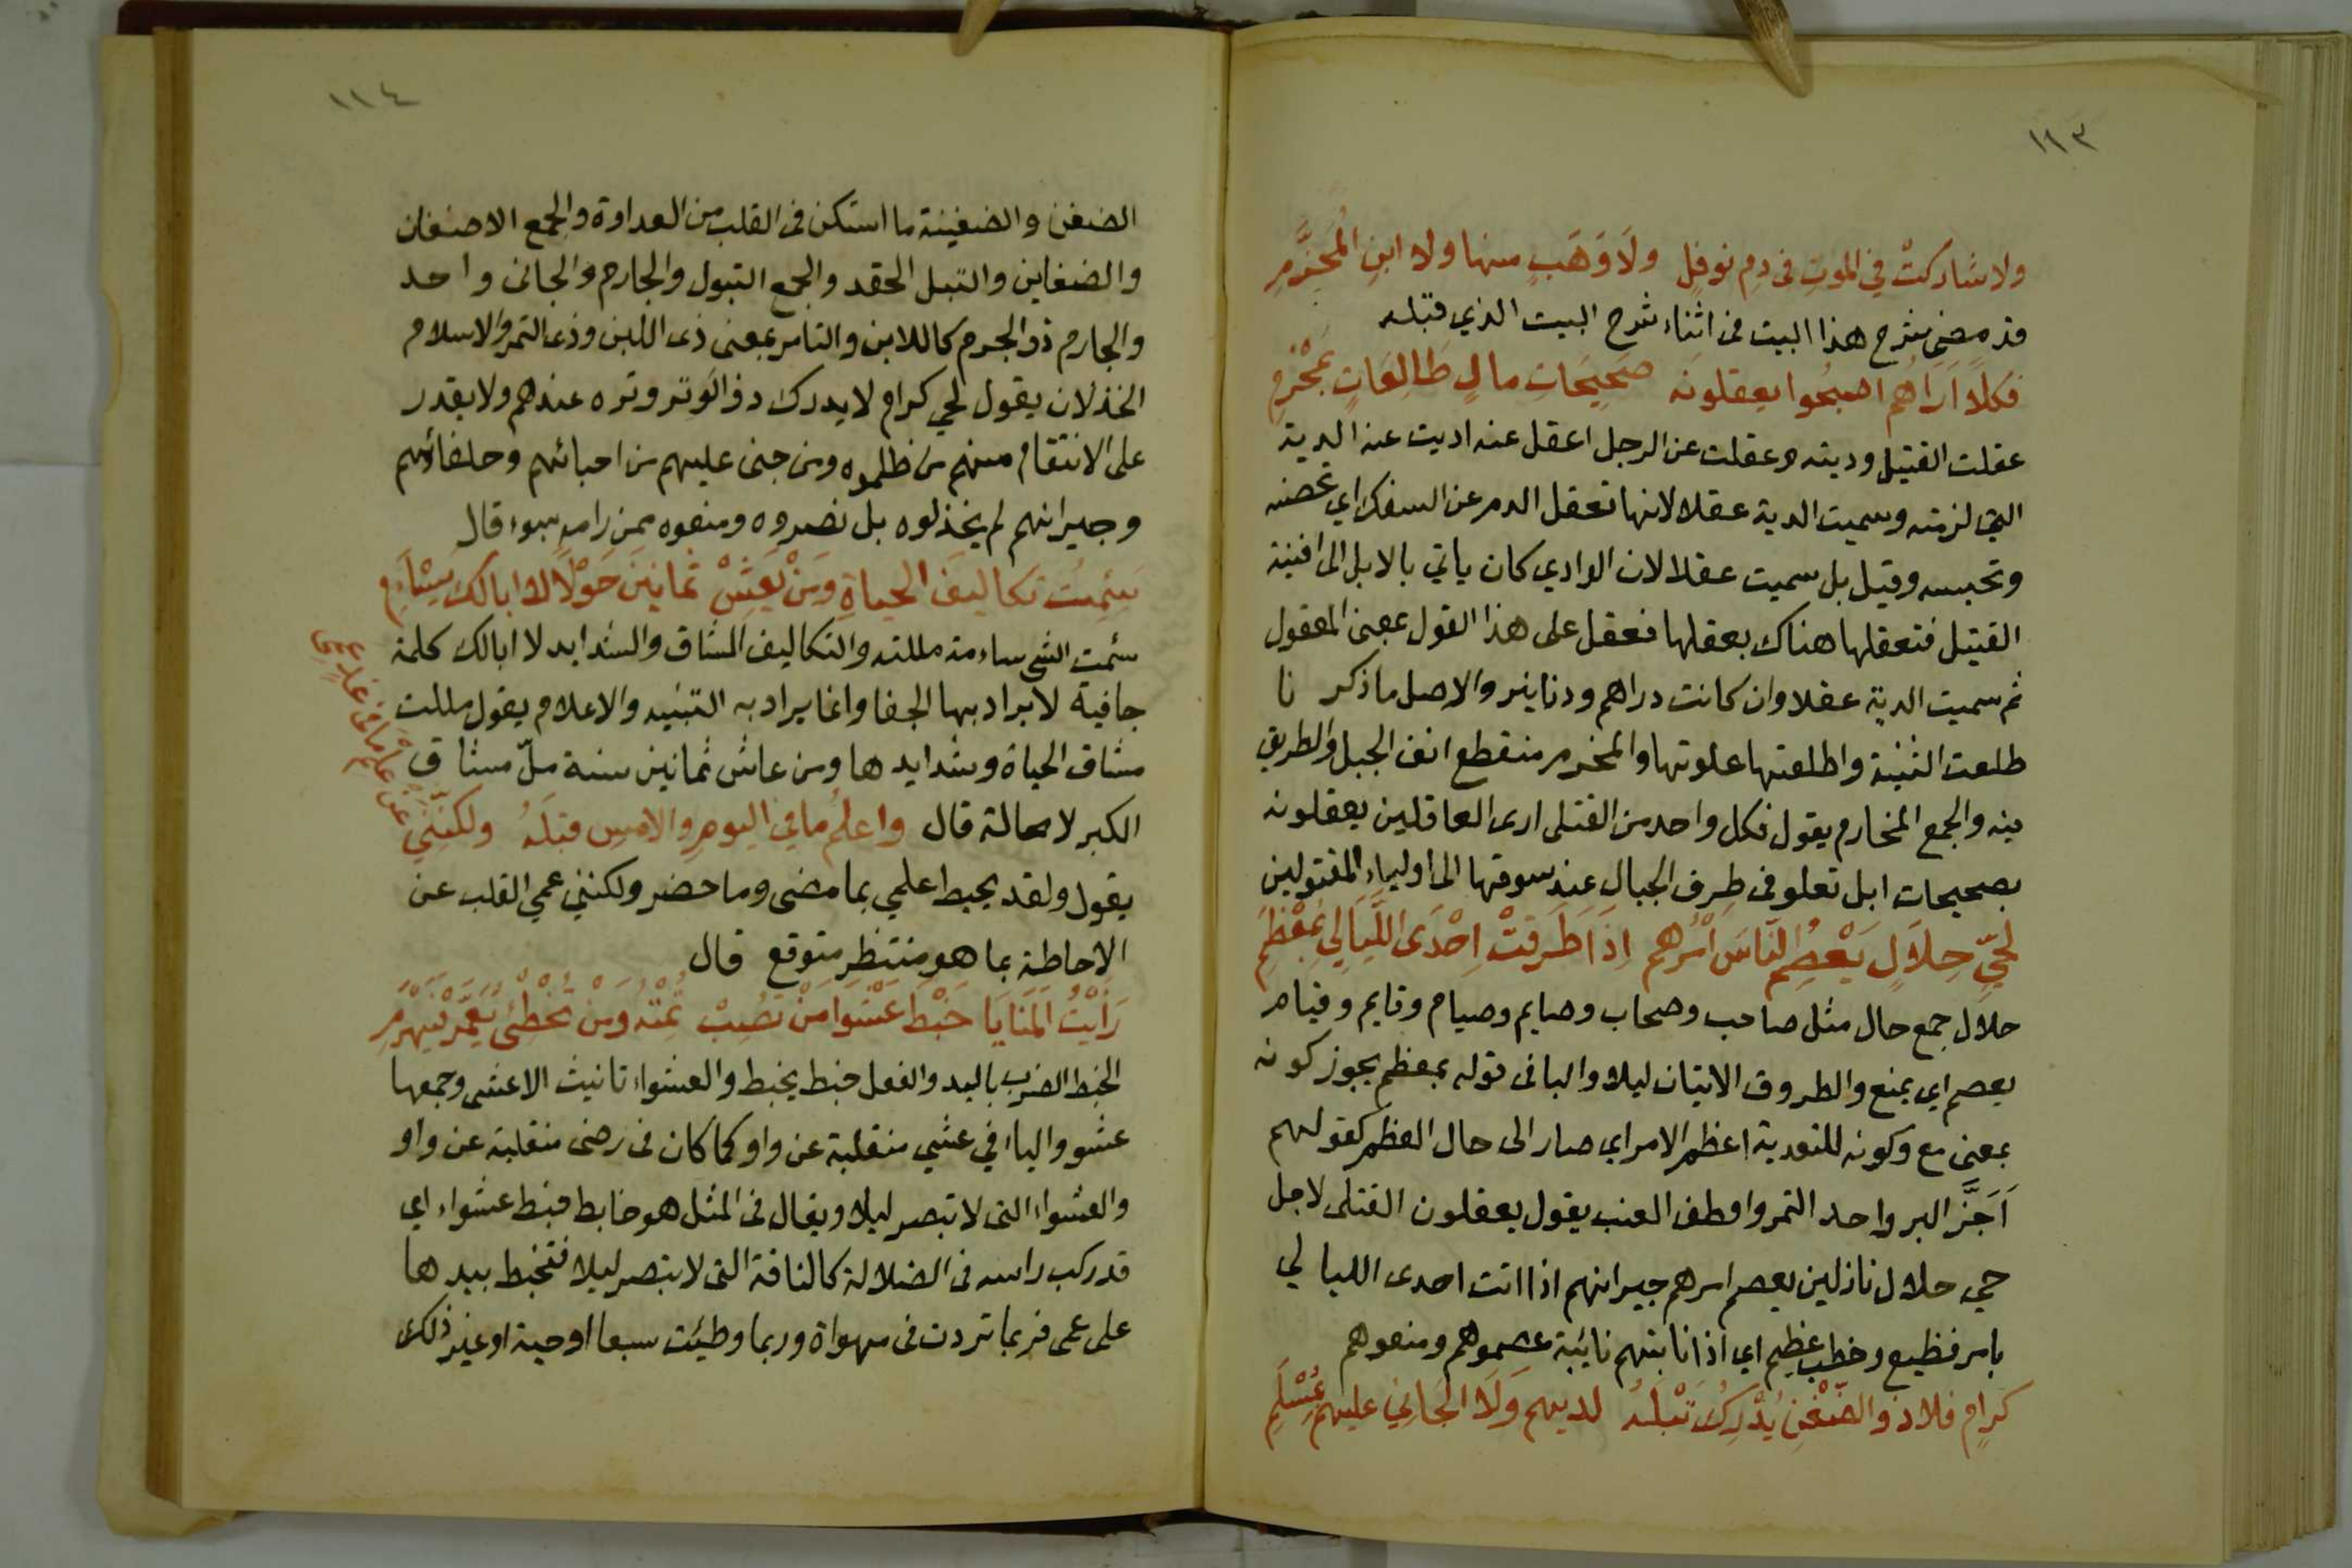 ١١٣
ولا شاركتْ في الموتِ فى دمِ نوفلٍ ولَا وَهَبٍ منها ولا ابنِ المُخزَّمِ
قد مضى شرح هذا البيت فى اثناء شرح البيت الذي قبله
فكلًا اَرَاهُم اصبحُوا يعقلونَه صَحِيحَاتِ مالٍ طَالِعَاتٍ بمَخْرِمِ
عقلت القتيل وديته وعقلت عن الرجل اعقل عنه اديت عنه الدية
التي لزمته وسميت الدية عقلا لانها تعقل الدم عن السفك اي تحصنه
وتحبسه وقيل بل سميت عقلا لان الوادي كان ياتي بالابل الى افنية
القتيل فتعقلها هناك بعقلها فعقل على هذا القول بمعنى المعقول
ثم سميت الدية عقلا وان كانت دراهم ودنانير والاصل ما ذكر نا
طلعت الثنية واطلعتها علوتها والمخرم منقطع انف الجبل والطريق
فيه والجمع المخارم يقول فكل واحد من القتلى ارى العاقلين يعقلونه
بصحيحات ابل تعلو فى طرف الجبال عند سوقها الى اولياء المقتولين
لحيٍّ حِلَالٍ يَعْصِمُ النَّاسَ اَمْرُهم اِذَا طَرَقتْ اِحْدَى اللَّيَالِي بمُعْظَمِ
حلال جمع حال مثل صاحب وصحاب وصايم وصيام وقايم وقيام
يعصم اي يمنع والطروق الاتيان ليلا والبا فى قوله بمعظم يجوز كونه
بمعنى مع وكونه للتعدية اعظم الامر اي صار الى حال العظم كقولهم
اَجَزَّ البر واجد التمر واقطف العنب يقول يعقلون القتلى لاجل
حي حلال نازلين يعصم امرهم جيرانهم اذا اتت احدى الليا لي
بامر فظيع وخطب عظيم اي اذا نابتهم نايبة عصموهم ومنعوهم
كرامٍ فلا ذو الضّغْنِ يُدْرِكُ تَبْلَهُ لديهم وَلَا الجَانِي عليهم بمُسْلَمِ
١١٤
الضغن والضغينة ما استكن فى القلب من العداوة والجمع الاضغان
والضغاين والتبل الحقد والجمع التبول والجارم والجانى واحد
والجارم ذو الجرم كاللابن والتامر بمعنى ذى اللبن وذى التمر والاسلام
الخذلان يقول لحي كرام لا يدرك ذو الوتر وتره عندهم ولا يقدر
على الانتقام منهم من ظلموه ومن جنى عليهم من احبائهم وحلفائهم
وجيرانهم لم يخذلوه بل نصروه ومنعوه ممن رامه بسوء قال
سَئِمتُ تكاليفَ الحياةِ ومَنْ يَعِشْ ثمانينَ حَوْلًا لا ابا لك يَسْأَمِ
سئمت الشي ساءمة مللته والتكاليف المشاق والشدايد لا ابالك كلمة
جافية لا يراد بها الجفا وانما يراد به التبنيه والاعلام يقول مللت
مشاق الحياة وشدايدها ومن عاش ثمانين سنة ملّ مشاق
الكبر لا محالة قال واعلمُ ما في اليومِ والامسِ قبلَهُ ولكنّني
عن علمِ ما فى غدٍ عمي
يقول ولقد يحيط علمي بما مضى وما حضر ولكنني عمي القلب عن
الاحاطة بما هو منتظر متوقع قال
رَأَيْتُ المَنَايَا خَبْطَ عَشْوَا مَنْ تُصِبْ تُمِتْهُ ومَنْ تُخْطِئْ يُعَمَّرْ فيَهْرَمِ
الخبط الضرب باليد والفعل خبط يخبط والعشواء تانيث الاعشى وجمعها
عشو والياء في عشي منقلبة عن واو كما كان فى رضى منقلبة عن واو
والعشواء التى لا تبصر ليلا ويقال فى المثل هو خابط خبط عشواء اي
قد ركب راسه فى الضلالة كالناقة التى لا تبصر ليلا فتخبط بيدها
على عمى فربما تردت فى مهواة وربما وطيئت سبعا او حية او غير ذلك